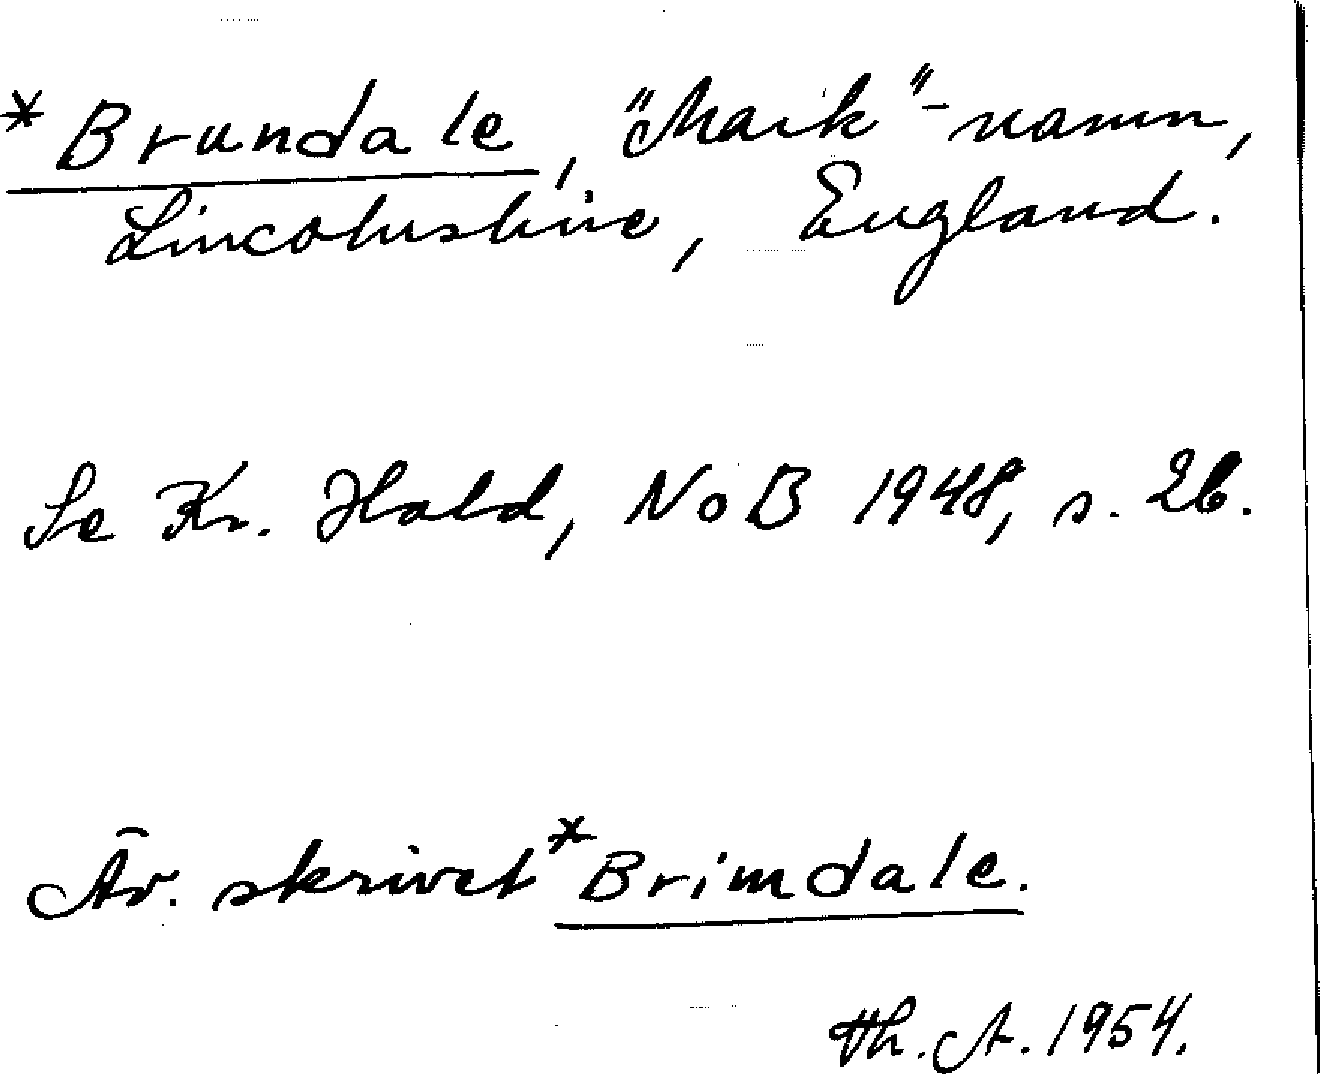 *Brundale, "Mark"-namn,
Lincolnshire, England.
Se Kr. Hald, NoB 1948, s. 26.
Äv. skrivet *Brimdale.
Th. A. 1954.